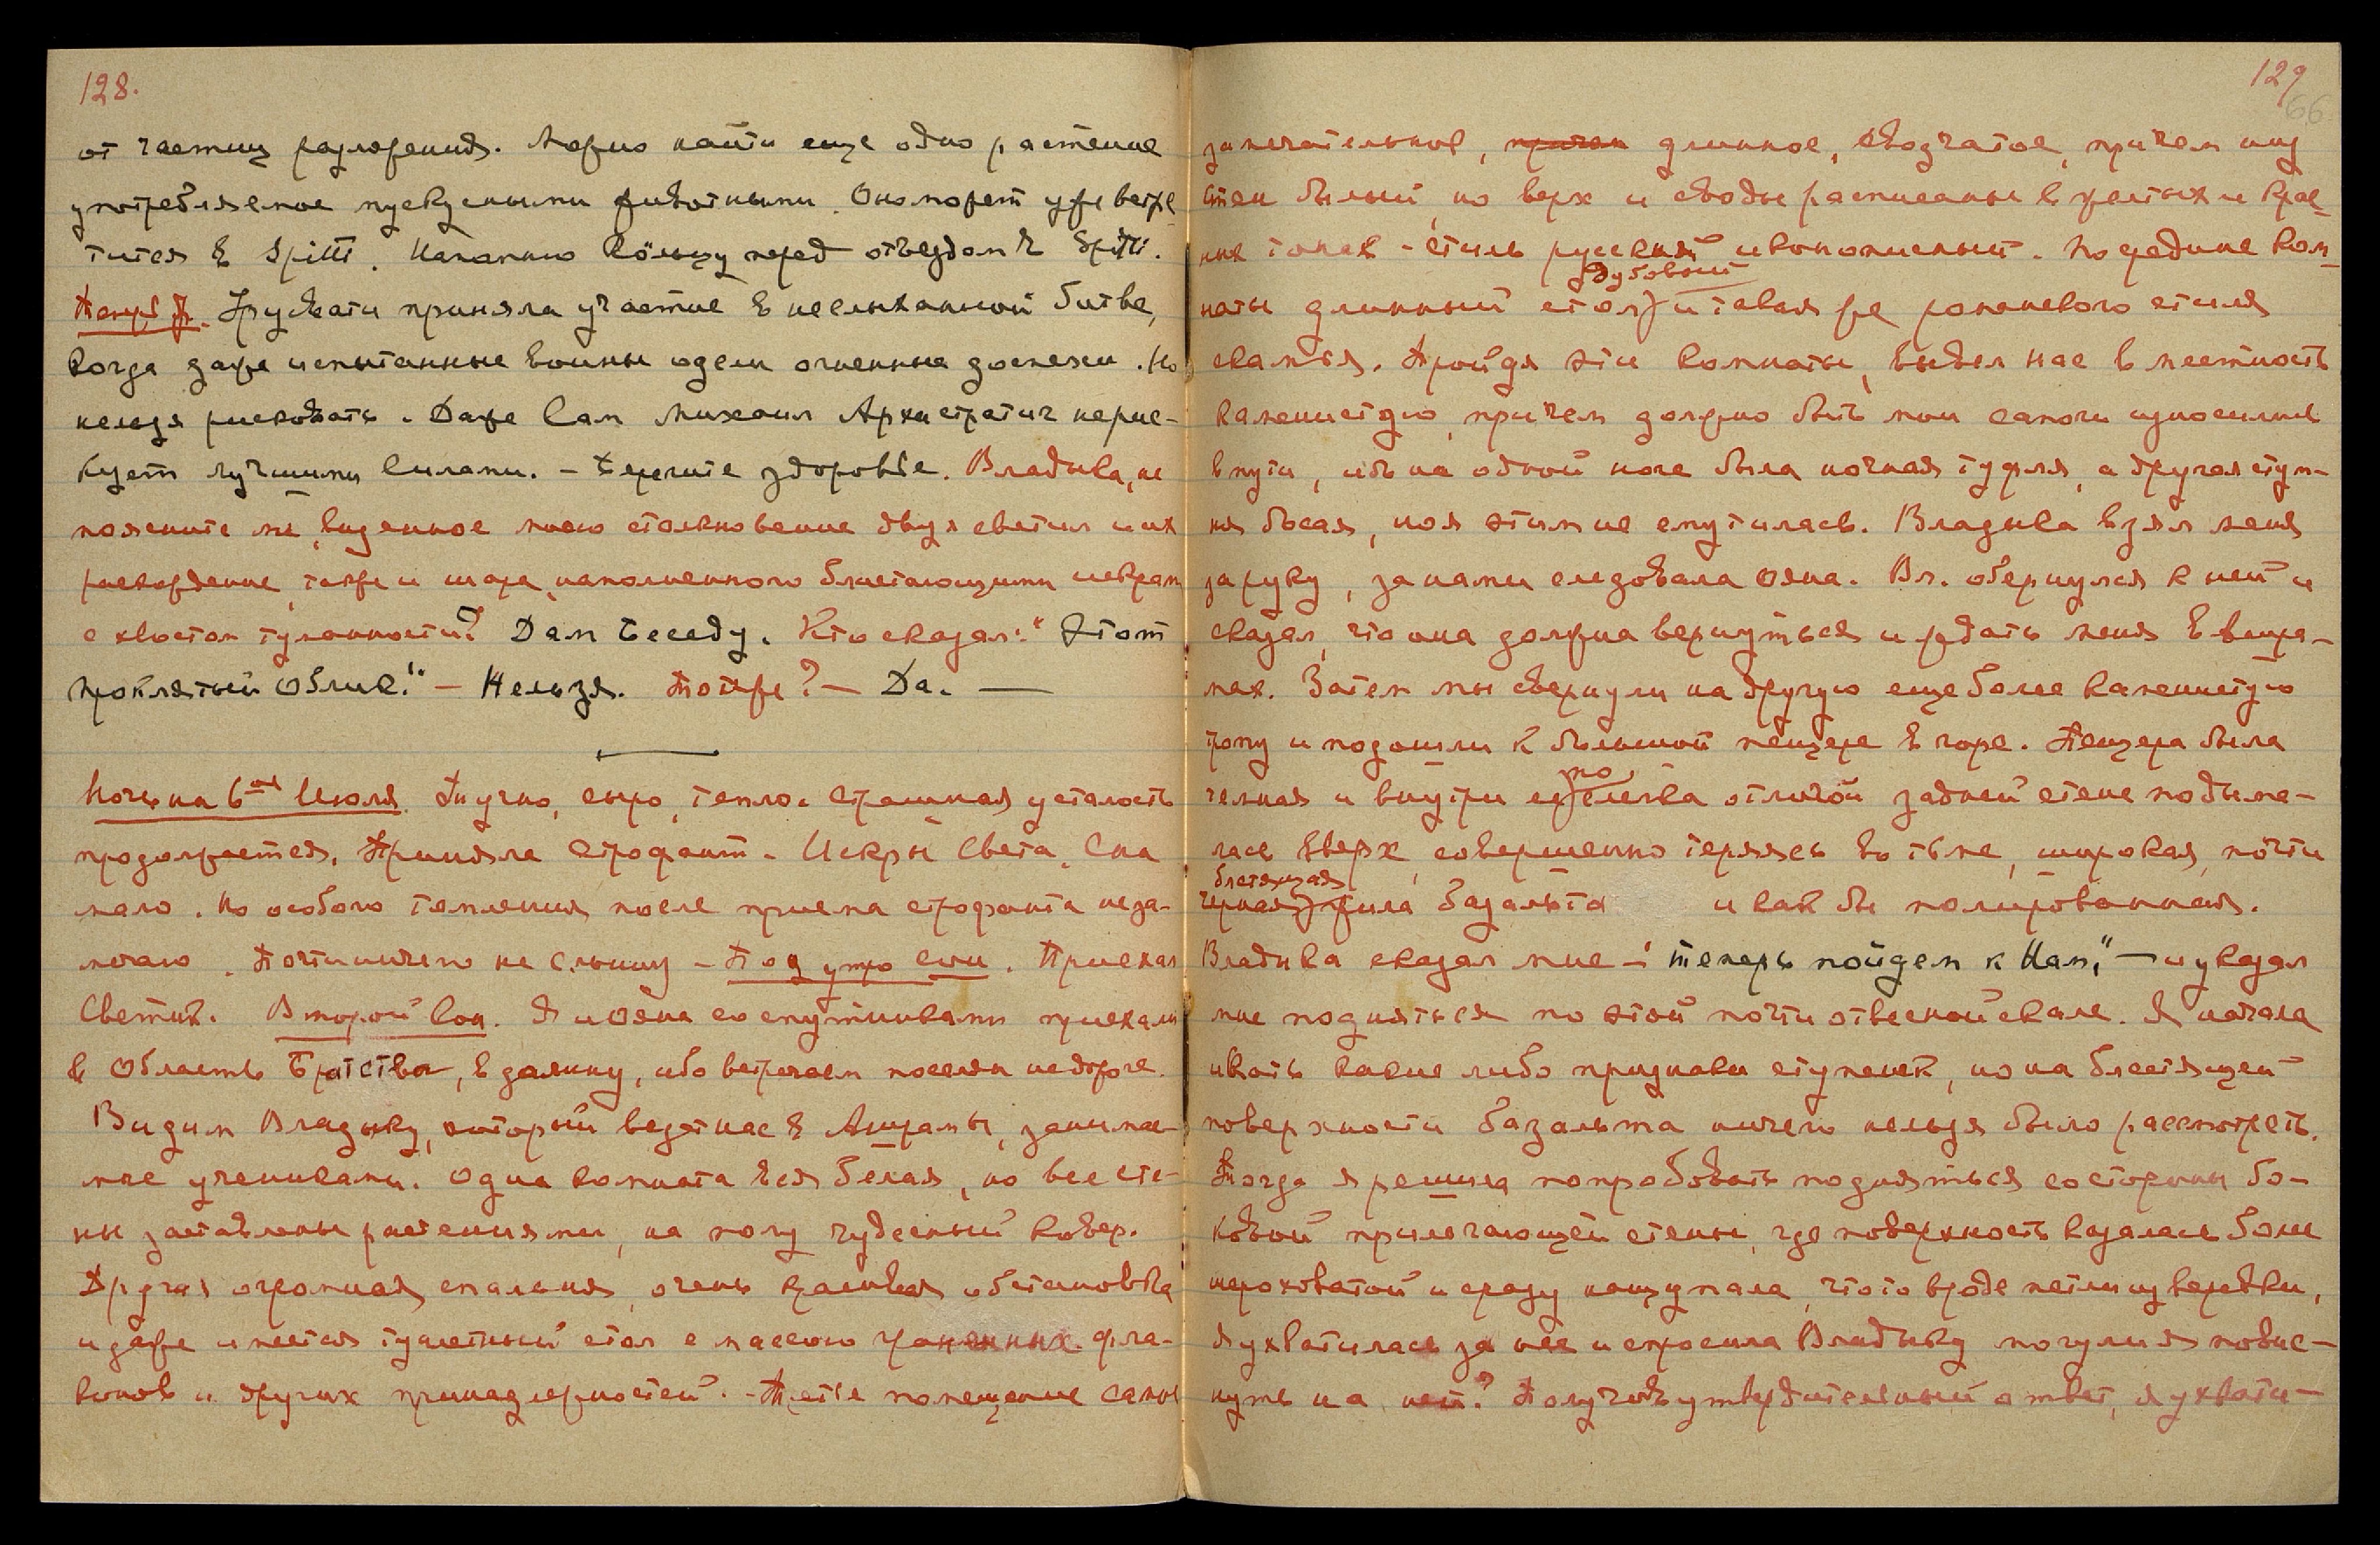 128.
от частиц разложения. Можно найти еще одно растение
употребляемое мускусными животными. Оно может уже встре
тится в Spitti. Напомню Кёльцу перед отъездом в Spitti.
Урусвати приняла участие в неслыханной битве,
когда даже испытанные воины одели огненные доспехи. Но
нельзя рисковать. Даже Сам Михаил Архистратиг не рис-
кует лучшими силами. – Берегите здоровье. Владыка, не
поясните ли, виденное мною столкновение двух светил и их
расхождение, также и шара, наполненного блистающими искрами
с хвостом туманности? Дам беседу. Кто сказал: "Этот
проклятый Облик!" – Нельзя. Тот же? – Да. —
Ночь на 6ое Июля. Душно, сыро, тепло. Страшная усталость
продолжается. Приняла строфант. Искры Света. Сна
мало. Но особого томления после приема строфанта не за-
мечаю. Почти ничего не слышу – Под утро сон. Приехал
Светик. Второй сон. Я и Ояна со спутниками приехали
в Область Братства, в долину, ибо встречаем поселян на дороге.
Видим Владыку, который ведет нас в Ашрамы, занимае-
мые учениками. Одна комната вся белая, но все сте-
ны заставлены растениями, на полу чудесный ковер.
Другая огромная спальня, очень красивая обстановка
и даже имеется туалетный стол с массою граненных фла-
конов и других принадлежностей. – Третье помещение самое
129
66
замечательное, причем длинное, сводчатое, причем низ
стен белый, но верх и своды расписаны в желтых и крас-
ных тонах – стиль русский иконописный. По средине ком-
дубовый
наты длинный стол и такая же романского стиля
скамья. Пройдя эти комнаты, вывел нас в местность
каменистую, причем должно быть мои сапоги износились
в пути, ибо на одной ноге была ночная туфля, а другая ступ-
ня босая, но я этим не смутилась. Владыка взял меня
за руку, за нами следовала Ояна. Вл. обернулся к ней и
сказал, что она должна вернуться и ждать меня в Ашра-
мах. Затем мы свернули на другую еще более каменистую
тропу и подошли к большой пещере в горе. Пещера была
по
темная и внутри ее слегка отлогой задней стене подыма-
лась вверх, совершенно теряясь во тьме, широкая, почти
блестящая
черная жила базальта и как бы полированная.
Владыка сказал мне – "теперь пойдем к Нам," – и указал
мне подняться по этой почти отвесной скале. Я начала
искать какие либо признаки ступенек, но на блестящей
поверхности базальта ничего нельзя было рассмотреть.
Тогда я решила попробовать подняться со стороны бо-
ковой прилегающей стены, где поверхность казалась более
шероховатой и сразу нащупала, что то вроде петли из веревки,
я ухватилась за нее и спросила Владыку могу ли я повис-
нуть на ней? Получив утвердительный ответ, я ухвати-